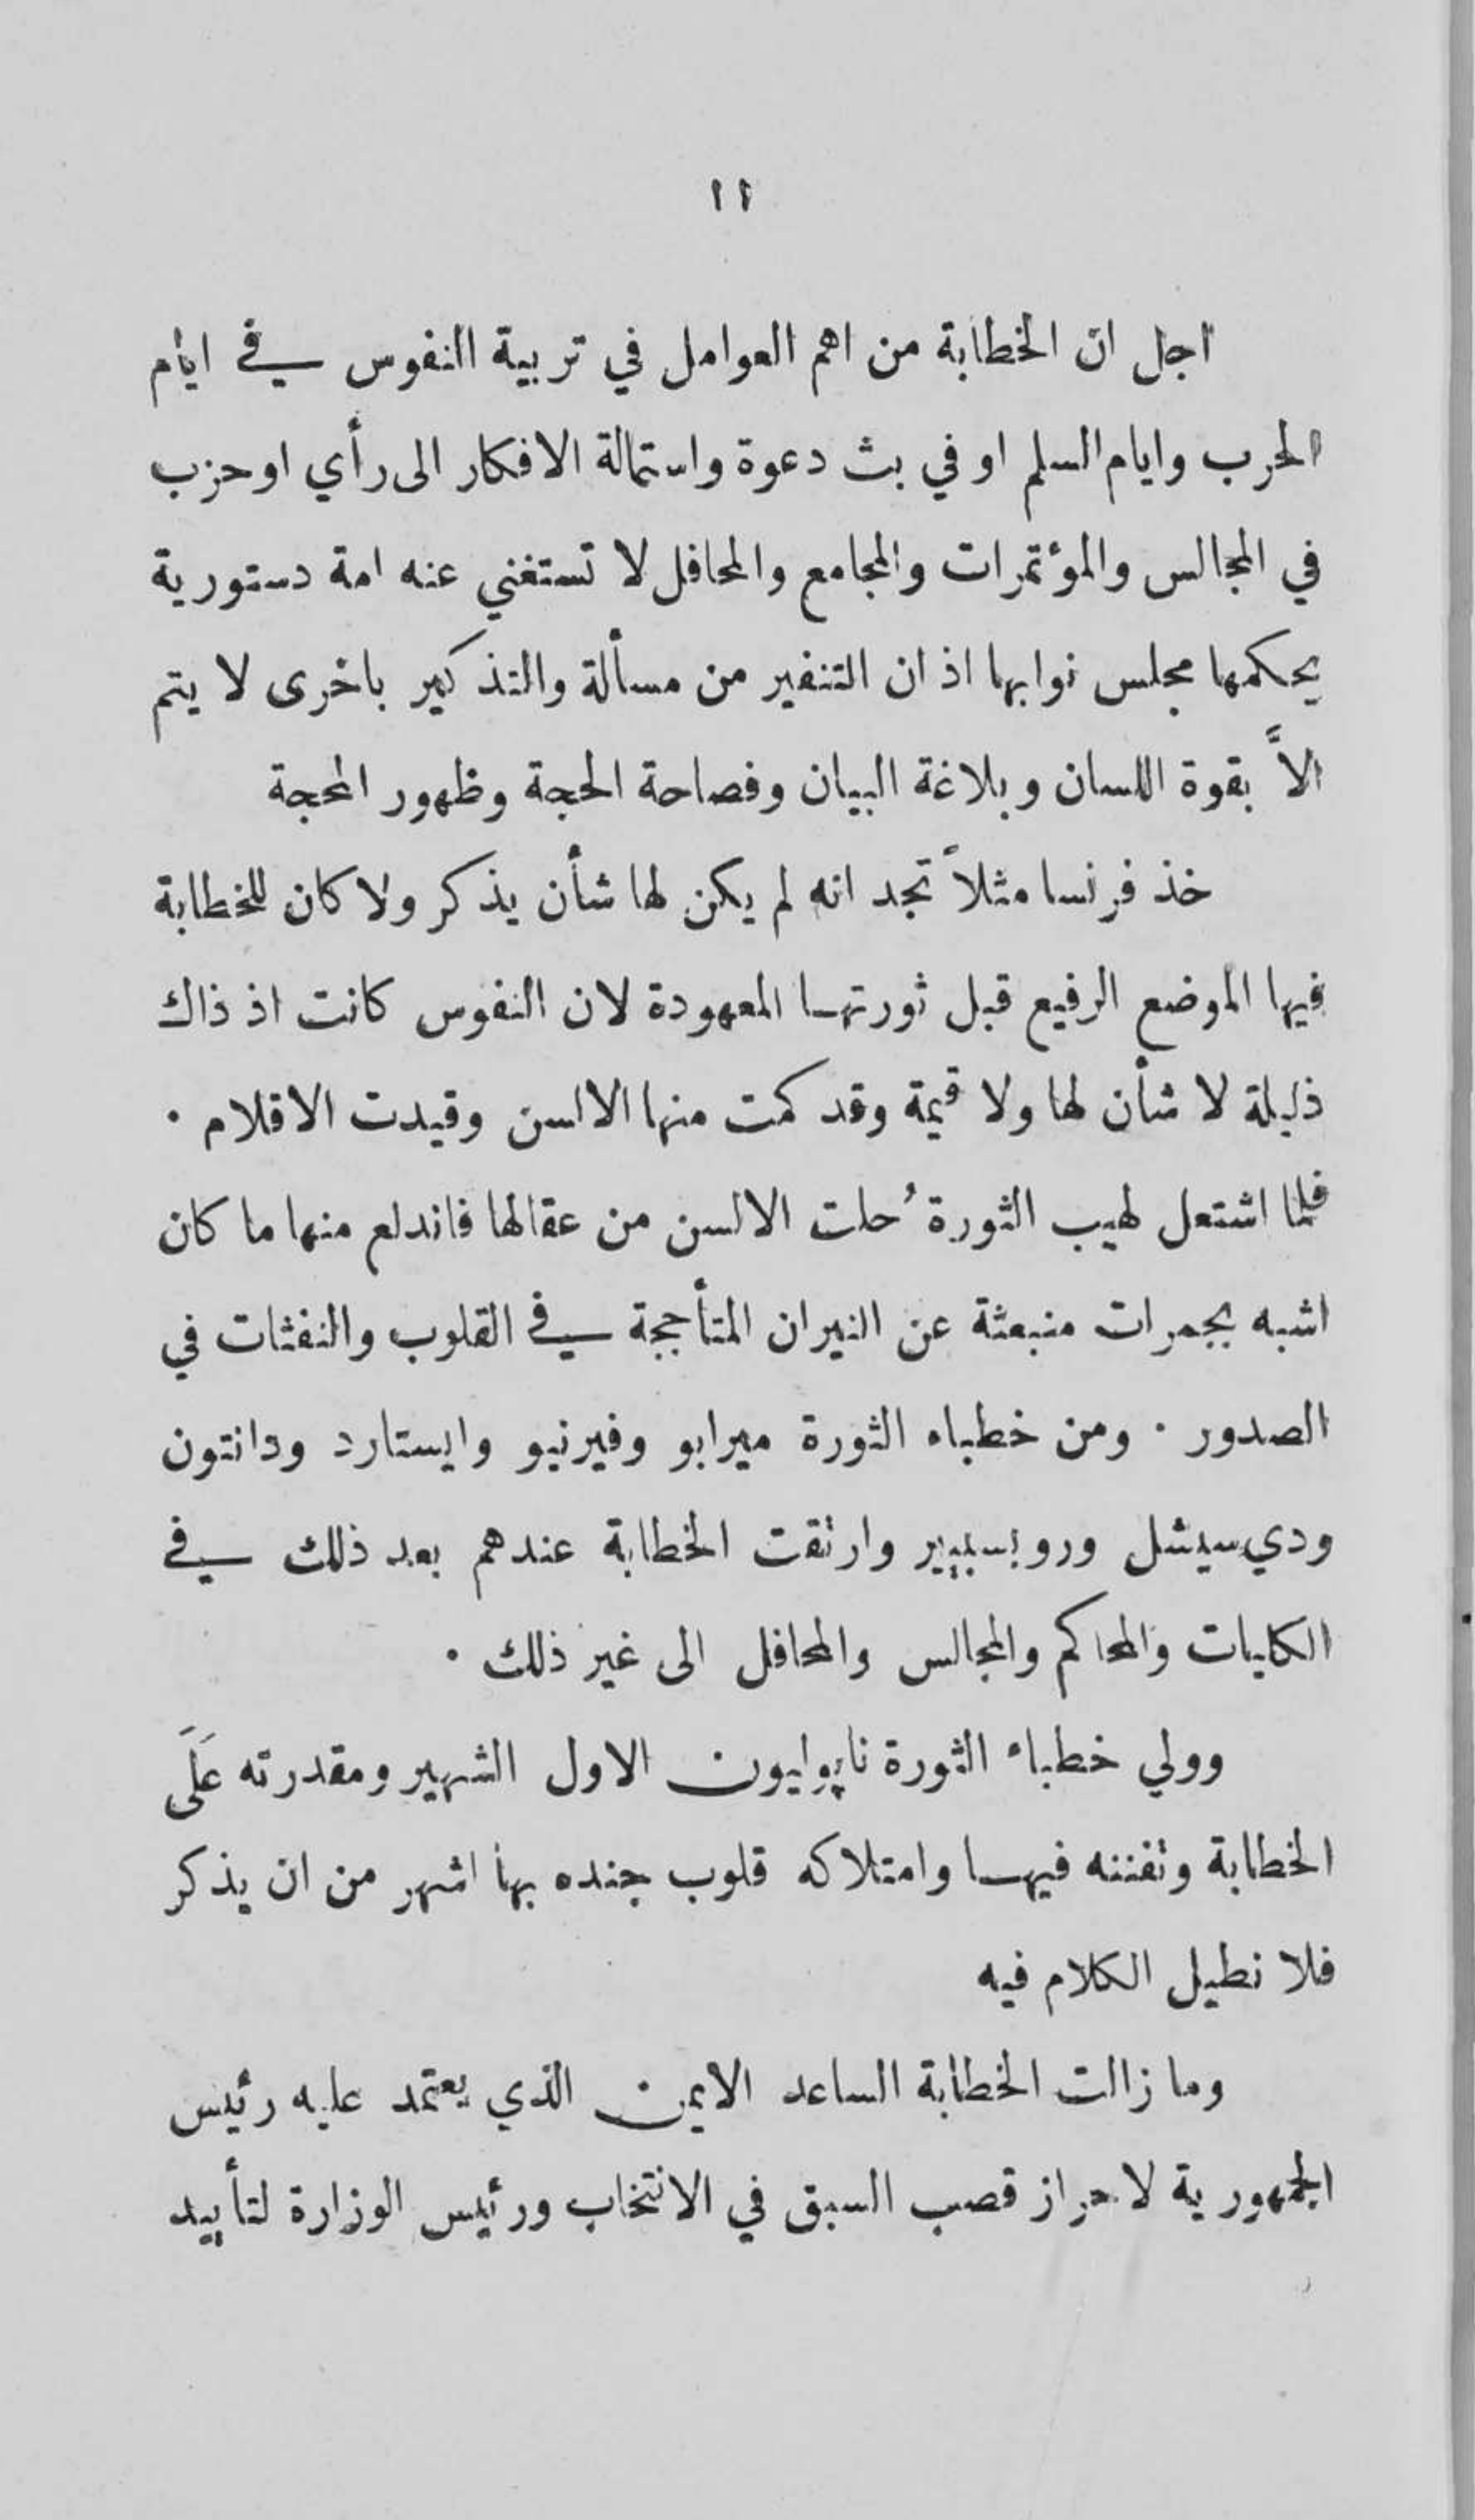 ١١
اجل ان الخطابة من اهم العوامل في تربية النفوس في ايام
الحرب وايام السلم او في بث دعوة واستمالة الافكار الى رأي او حزب
في المجالس والمؤتمرات والمجامع والمحافل لا تستغني عنه امة دستورية
يحكمها مجلس نوابها اذ ان التنفير من مسألة والتذكير باخرى لا يتم
الاَّ بقوة اللسان وبلاغة البيان وفصاحة الحجة وظهور المحجة
خذ فرنسا مثلاً تجد انه لم يكن لها شأن يذكر ولا كان للخطابة
فيها الموضع الرفيع قبل ثورتها المعهودة لان النفوس كانت اذ ذاك
ذليلة لا شأن لها ولا قيمة وقد كمت منها الالسن وقيدت الاقلام ·
فلما اشتعل لهيب الثورة حُلت الالسن من عقالها فاندلع منها ما كان
اشبه بجمرات منبعثة عن النيران المتأججة في القلوب والنفثات في
الصدور · ومن خطباء الثورة ميرابو وفيرنيو وايستارد ودانتون
ودي سيشل وروبسبيير وارتقت الخطابة عندهم بعد ذلك في
الكليات والمحاكم والمجالس والمحافل الى غير ذلك ·
وولي خطباء الثورة ناپوليون الاول الشهير ومقدرته عَلَى
الخطابة وتفننه فيها وامتلاكه قلوب جنده بها اشهر من ان يذكر
فلا نطيل الكلام فيه
وما زالت الخطابة الساعد الايمن الذي يعتمد عليه رئيس
الجمهورية لاحراز قصب السبق في الانتخاب ورئيس الوزارة لتأييد